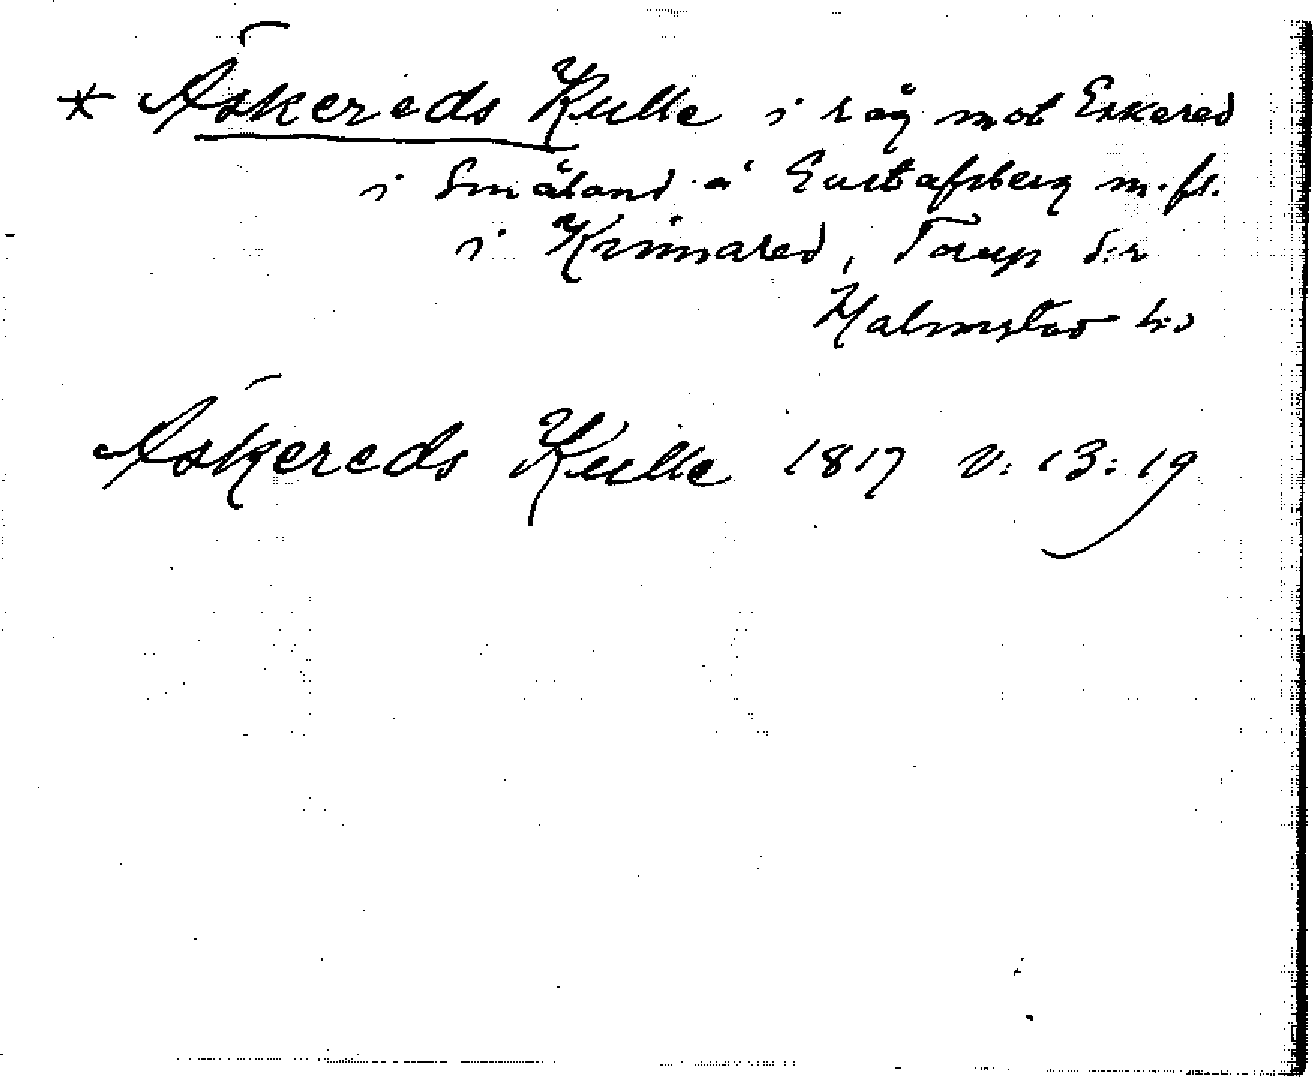 * Äskereds Kulle i råg mot Eskered
i Småland å Gustafsberg m.fl.
i Kinnared, Torup s:n
Halmstad h:d
Äskereds Kulle 1817 V: 13: 19